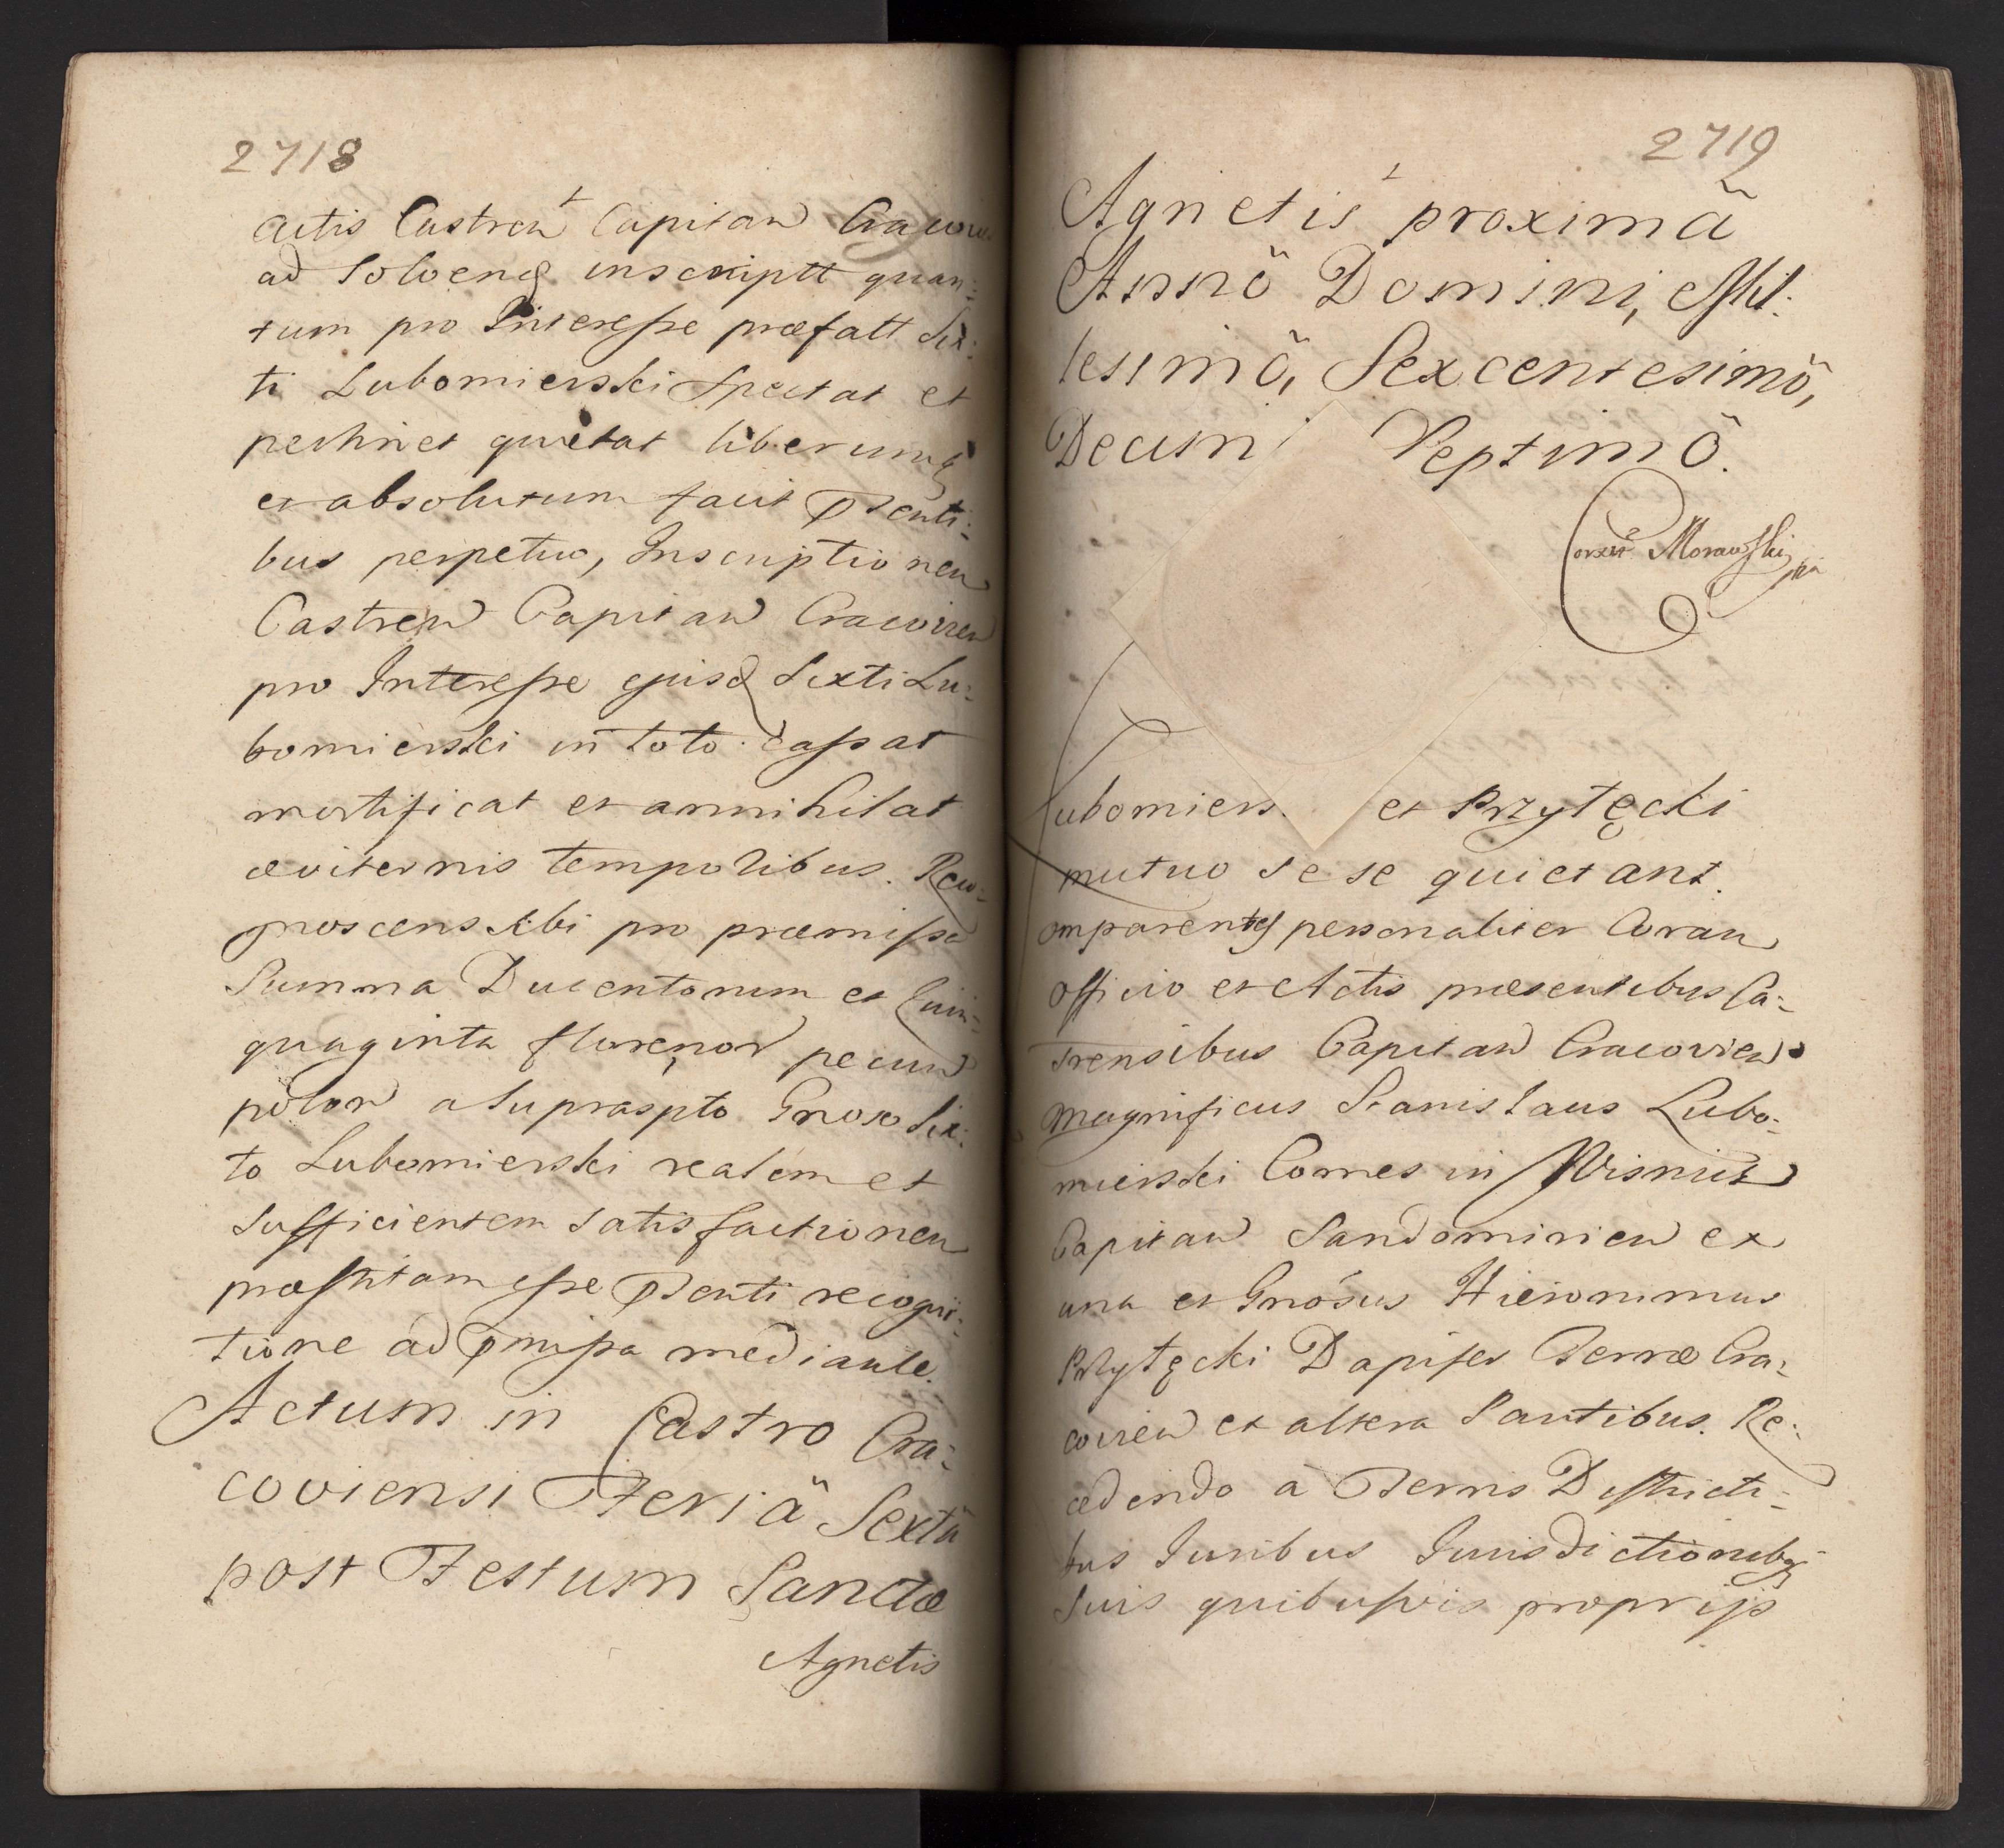 2718
actis Castren Capitan Cracovi
ad solvend inscriptt quan:
tum pro Interesse præfatt Six:
ti Lubomierski Spectat et
pertinet quietat liberumq
et absolutum facit pṛsenti:
bus perpetuo, Inscriptionem
Castren Capitan Cracovien
pro Interesse ejusd Sixti Lu:
bomierski in toto cassat
mortificat et annihilat
æviternis temporibus. Reco:
gnoscens sibi pro præmissa
Summa Ducentorum et Quin:
quaginta florenor pecun
polon a Supraspto Gnoso Six:
to Lubomierski realem et
sufficientem satisfactionem
præstitam esse psenti recogni:
tione ad pmissa mediante.
Actum in Castro Cra:
coviensi Feriâ Sextâ
post Festum Sanctæ
Agnetis
2719
Agnetis proximâ
Annô Domini, Mil:
lesimô, Sexcentesimô,
Decim Septimô.
Correxit Morawski mpa
Lubomiers et Przyłęcki
mutuo se se quietant.
omparentes personaliter Coram
Officio et Actis præsentibus Ca:
strensibus Capitan Cracovien
Magnificus Stanislaus Lubo:
mierski Comes in Wisnicz
Capitan Sandomirien ex
una et Gnosus Hieronimus
Przyłęcki Dapifer Terræ Cra:
covien ex altera Partibus. Re:
cedendo a Terris Districti:
bus Juribus Jurisdictionibq
Suis quibusvis proprijs